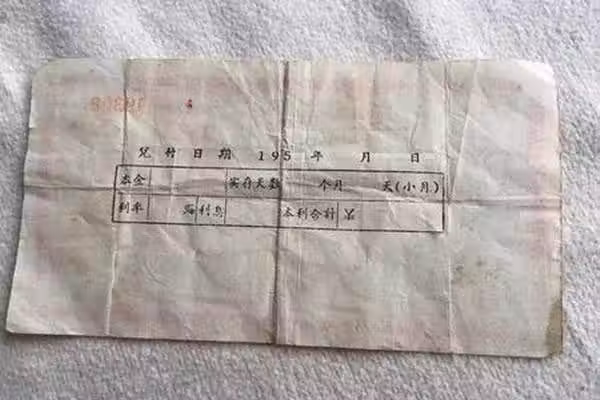 兑付日期 195 年 月 日
本金 实存天数 个月 天(小月)
利率 利息 本利合計